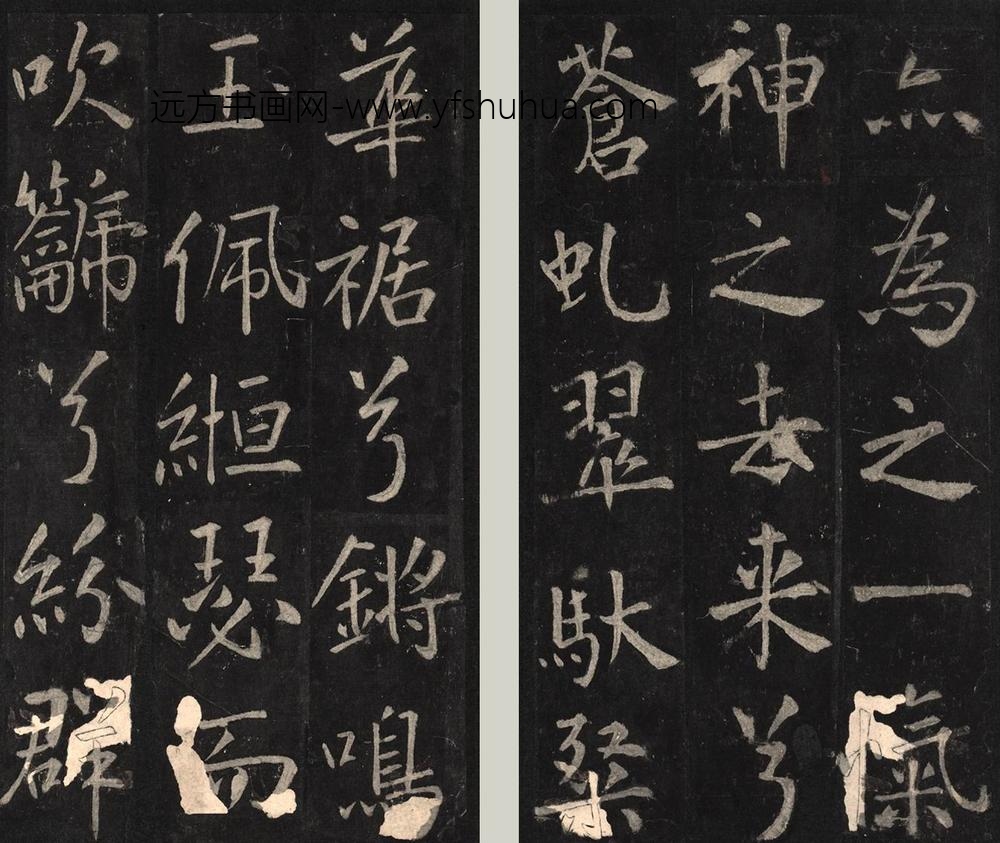 為之一氣
神之去來兮
蒼虬翠馱粲
華裾兮鏘鳴
玉佩緪瑟而
吹兮紛群
远方书画网-www.yfshuhua.com